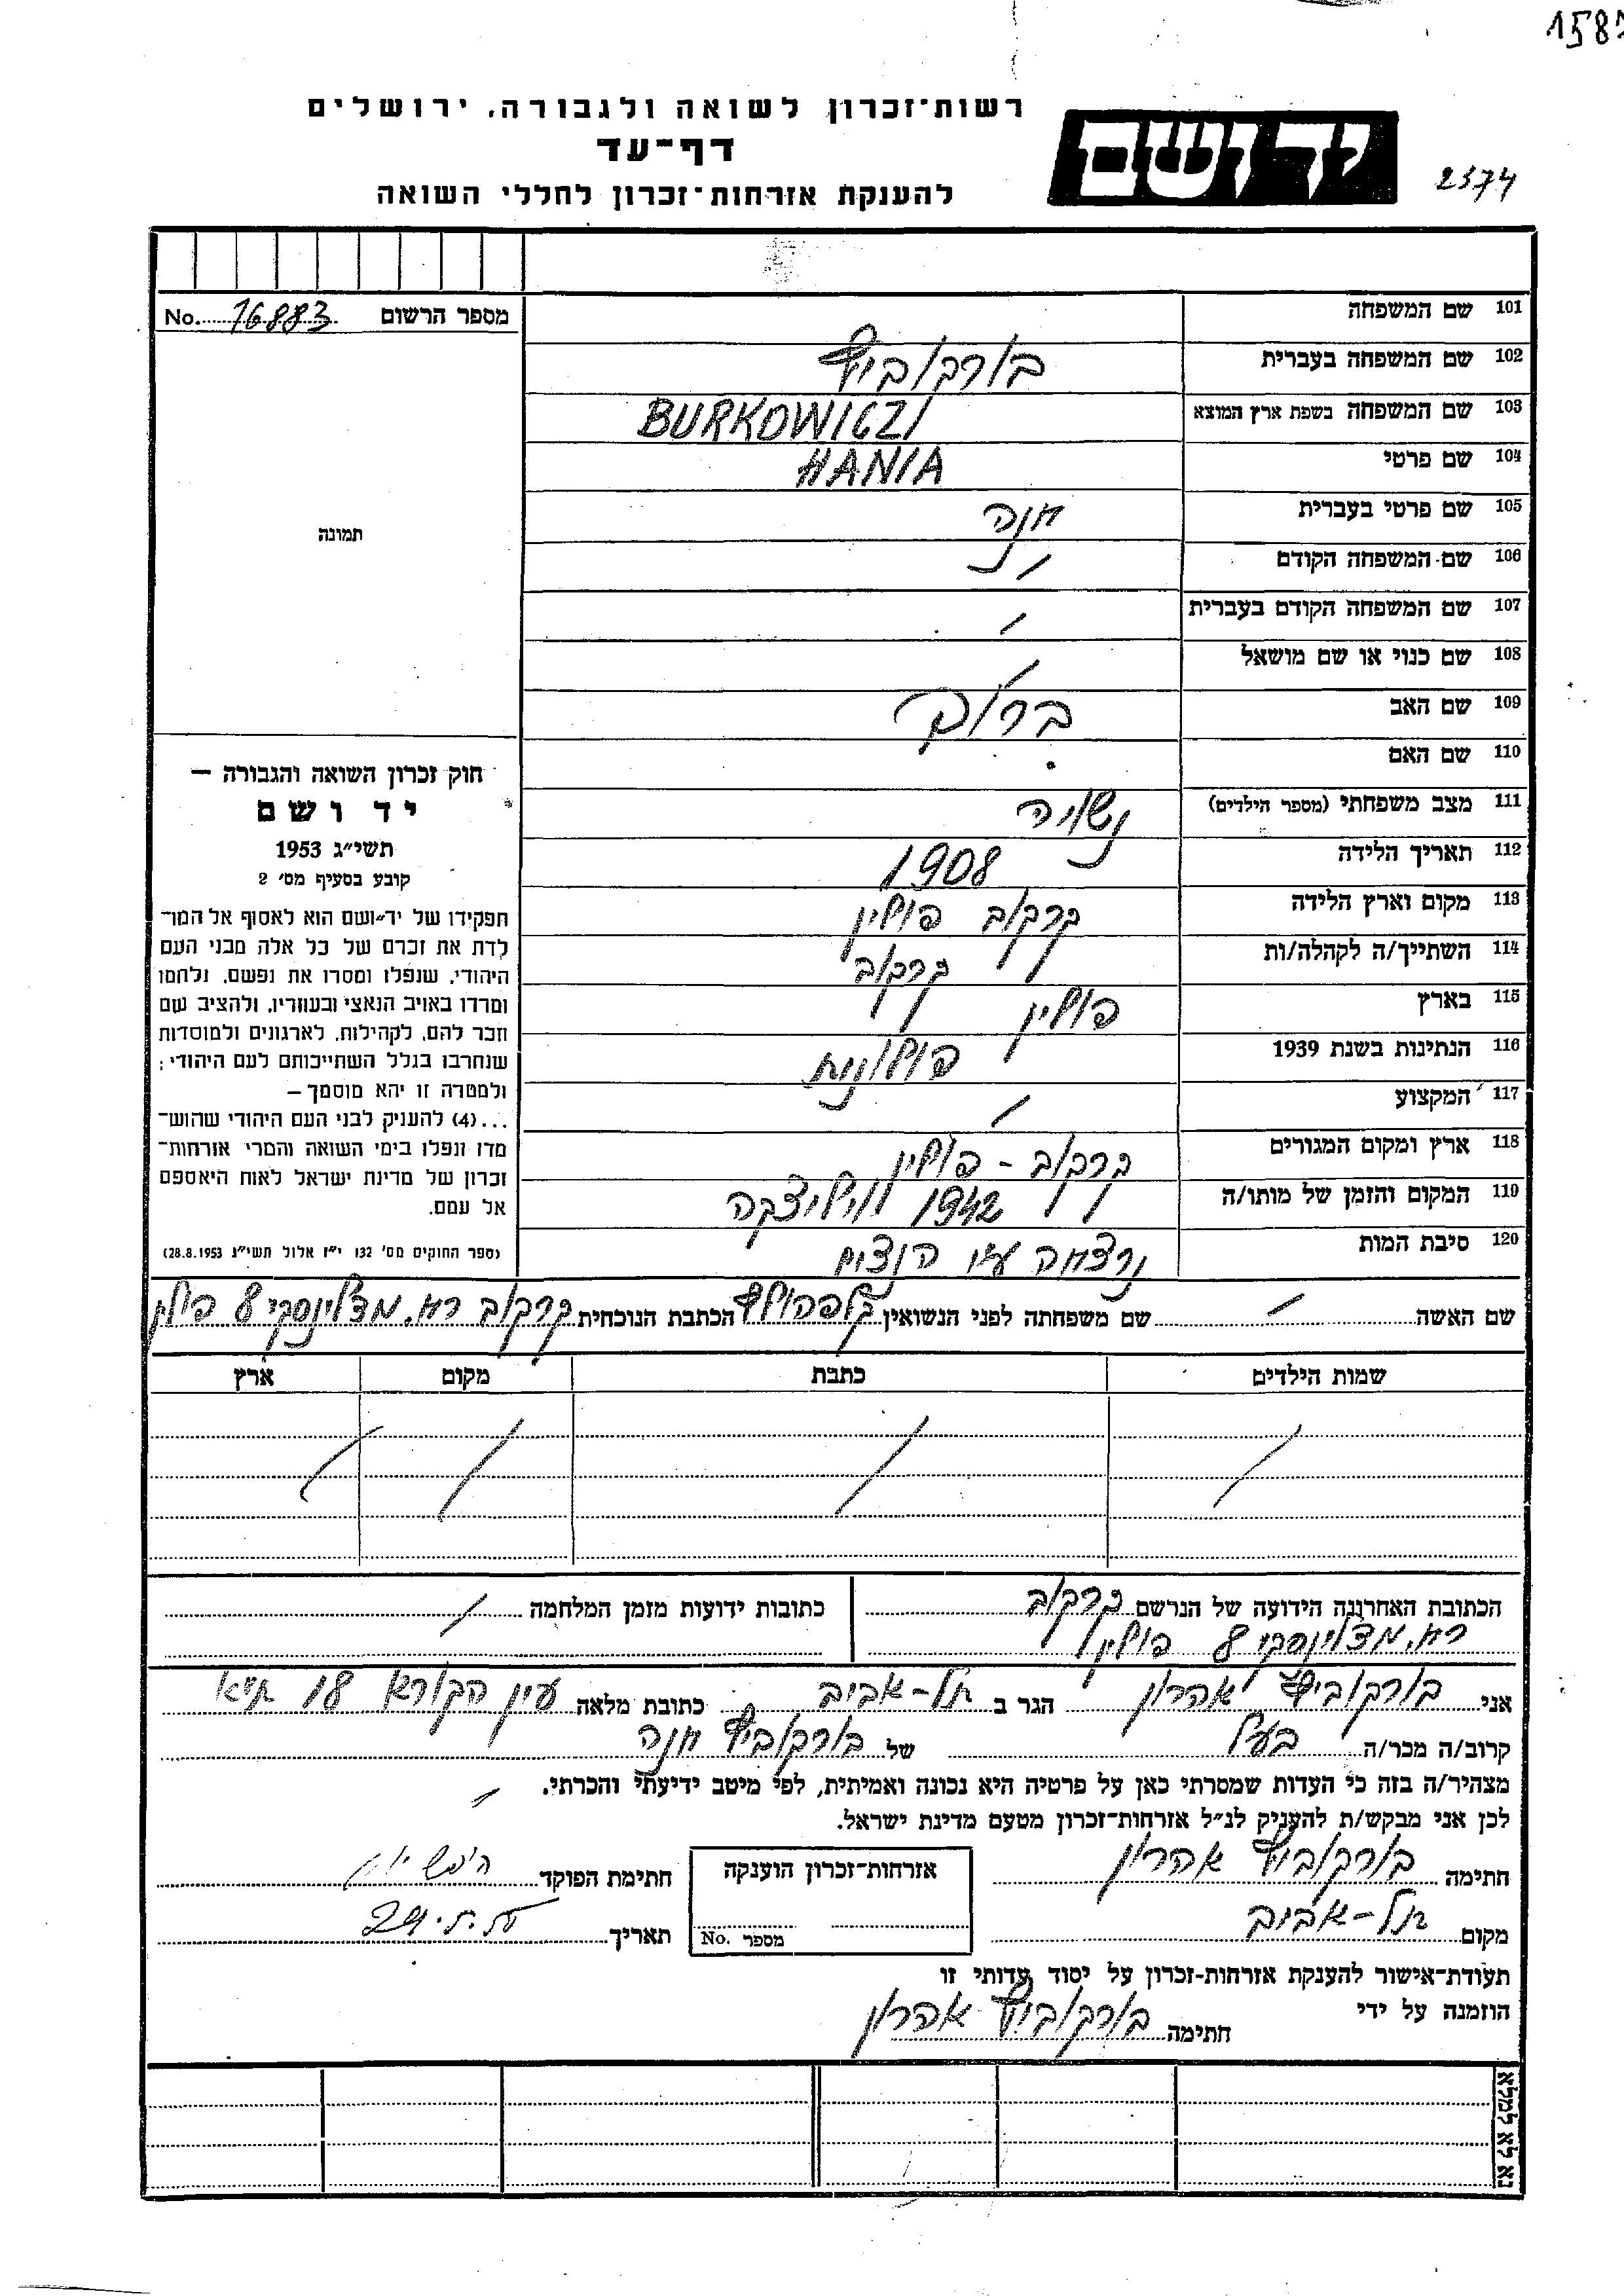 1587
רשות־זכרון לשואה ולגבורה, ירושלים
דף־עד
להענקת אזרחות־זכרון לחללי השואה
יד ושם
2374
מספר הרשום No. 16883
תמונה
101 שם המשפחה
102 שם המשפחה בעברית בורקוביץ
103 שם המשפחה בשפת ארץ המוצא BURKOWICZ
104 שם פרטי HANIA
105 שם פרטי בעברית חנה
106 שם המשפחה הקודם /
107 שם המשפחה הקודם בעברית /
108 שם כנוי או שם מושאל /
109 שם האב ברוך
110 שם האם
111 מצב משפחתי (מספר הילדים) נשויה
112 תאריך הלידה 1908
113 מקום וארץ הלידה קרקוב פולין
114 השתייך/ה לקהלה/ות קרקוב
115 בארץ פולין
116 הנתינות בשנת 1939 פולונית
117 המקצוע /
118 ארץ ומקום המגורים קרקוב - פולין
119 המקום והזמן של מותו/ה 1942 ויליצקה
120 סיבת המות נרצחה ע״י הנצים
חוק זכרון השואה והגבורה —
יד ושם
תשי״ג 1953
קובע בסעיף מס׳ 2
תפקידו של יד־ושם הוא לאסוף אל המו־
לדת את זכרם של כל אלה מבני העם
היהודי, שנפלו ומסרו את נפשם, נלחמו
ומרדו באויב הנאצי ובעוזריו, ולהציב שם
וזכר להם, לקהילות, לארגונים ולמוסדות
שנחרבו בגלל השתייכותם לעם היהודי;
ולמטרה זו יהא מוסמך —
...(4) להעניק לבני העם היהודי שהוש־
מדו ונפלו בימי השואה והמרי אזרחות־
זכרון של מדינת ישראל לאות היאספם
אל עמם.
(ספר החוקים מס׳ 132 י״ז אלול תשי״ג 28.8.1953)
שם האשה / שם משפחתה לפני הנשואין הכתבת הנוכחית קרקוב רח. 8 פולין
שמות הילדים כתבת מקום ארץ
הכתובת האחרונה הידועה של הנרשם קרקוב
רח. 8 פולין
כתובות ידועות מזמן המלחמה /
אני בורקוביץ אהרון הגר ב תל-אביב כתובת מלאה עין הקורא 18 ת״א
קרוב/ה מכר/ה בעל של בורקוביץ חנה
מצהיר/ה בזה כי העדות שמסרתי כאן על פרטיה היא נכונה ואמיתית, לפי מיטב ידיעתי והכרתי.
לכן אני מבקש/ת להעניק לנ״ל אזרחות־זכרון מטעם מדינת ישראל.
חתימה בורקוביץ אהרון
אזרחות־זכרון הוענקה
מספר No.
חתימת הפוקד
מקום תל-אביב
תאריך
תעודת־אישור להענקת אזרחות־זכרון על יסוד עדותי זו
הוזמנה על ידי
חתימה בורקוביץ אהרון
נא לא למלא